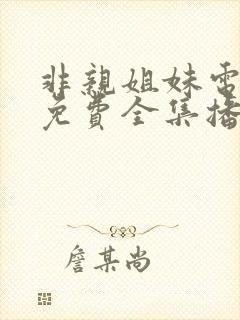 非親姐妹電
免費全集播
詹某尚